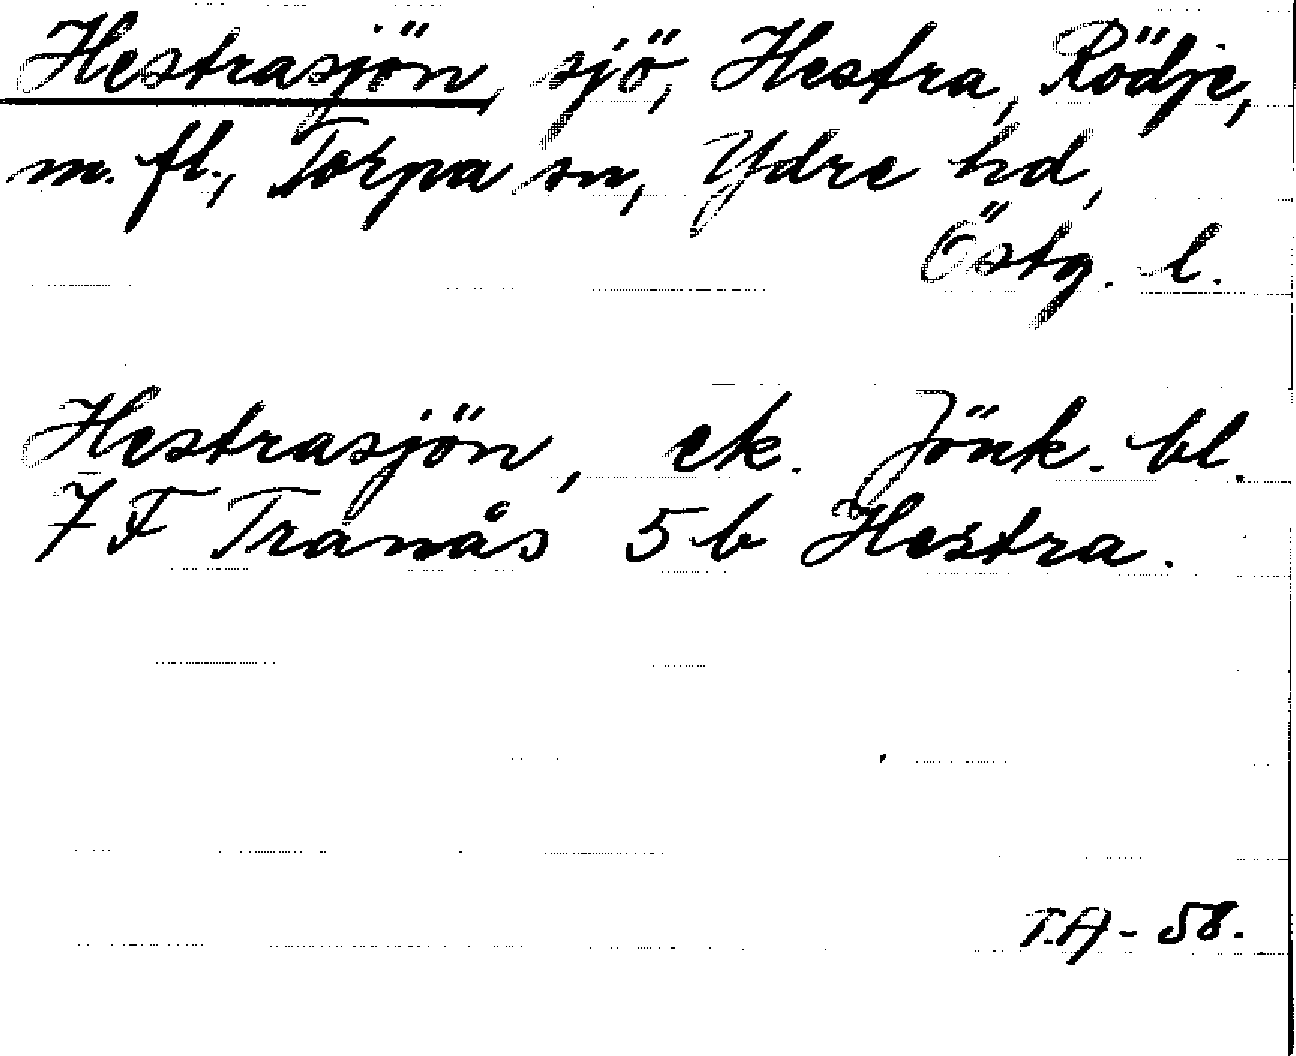 Hestrasjön, sjö, Hestra, Rödje,
m. fl., Torpa sn, Ydre hd,
Östg. l.
Hestrasjön, ek. Jönk. bl.
7 F Tranås 5 b Hestra.
T.A - 58.